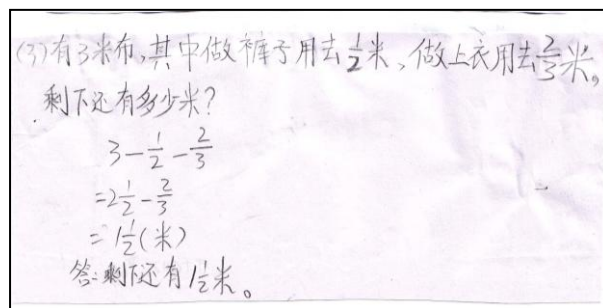 (3)有3米布,其中做裤子用去1/2米、做上衣用去2/3米。
剩下还有多少米?
3-1/2-2/3
=2 1/2-2/3
=1 1/2(米)
答:剩下还有1 1/2米。